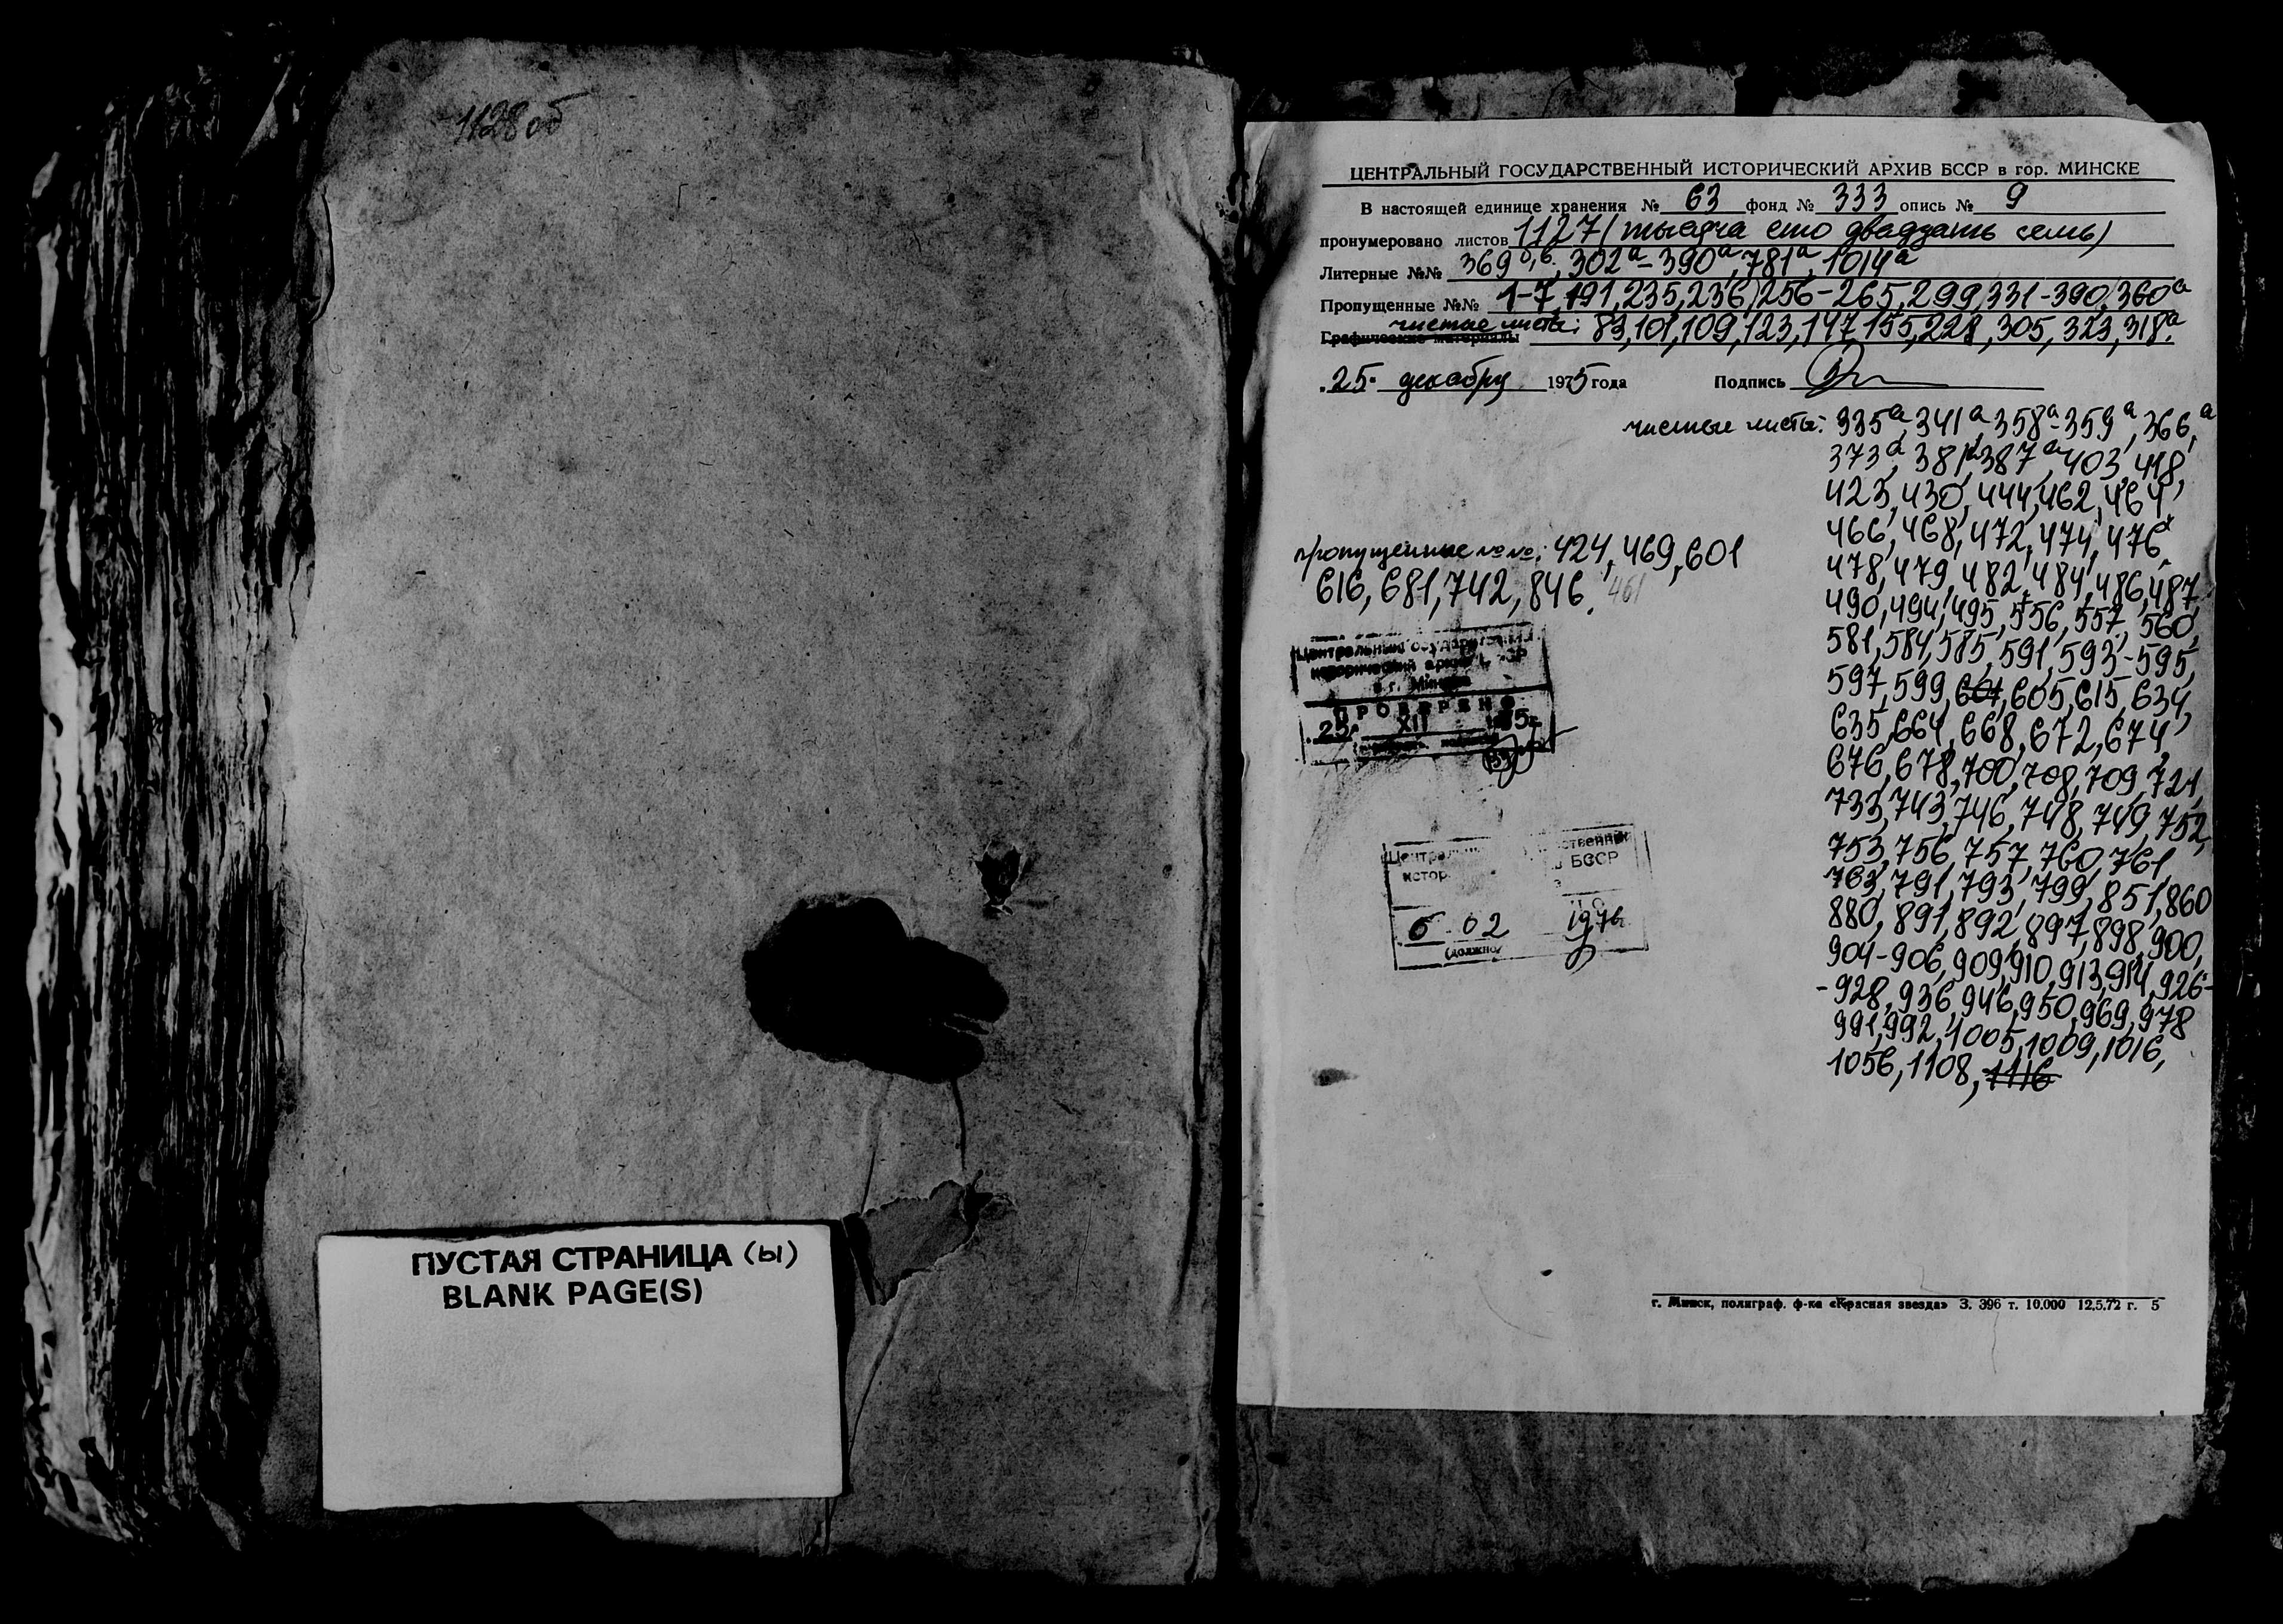 1128об
ПУСТАЯ СТРАНИЦА (ы)
BLANK PAGE(S)
ЦЕНТРАЛЬНЫЙ ГОСУДАРСТВЕННЫЙ ИСТОРИЧЕСКИЙ АРХИВ БССР в гор. МИНСКЕ
В настоящей единице хранения № 63 фонд № 333 опись № 9
пронумеровано листов 1127 (тысяча сто двадцать семь)
Литерные №№ 369б,в, 302а-390а, 781а, 1014а
Пропущенные №№ 1-7, 191, 235, 236, 256-265, 299, 331-390, 360а
чистые листы: 83, 101, 109, 123, 147, 155, 228, 305, 323, 318а.
Графические материалы
"25" декабря 1975 года Подпись
чистые листы: 335а, 341а, 358а-359а, 366а,
373а, 381а, 387а, 403, 418,
423, 430, 444, 462, 464,
466, 468, 472, 474, 476,
478, 479, 482, 484, 486, 487,
490, 494, 495, 556, 557, 560,
581, 584, 585, 591, 593-595,
597, 599, 601, 605, 615, 634,
635, 664, 668, 672, 674,
676, 678, 700, 708, 709, 721,
733, 743, 746, 748, 749, 752,
753, 756, 757, 760, 761,
763, 791, 793, 799, 851, 860
880, 891, 892, 897, 898, 900,
904-906, 909, 910, 913, 914, 926-
-928, 936, 946, 950, 969, 978
991, 992, 1005, 1009, 1016,
1056, 1108, 1116
пропущенные №№: 424, 469, 601
616, 681, 742, 846. 461
Центральный государственный
исторический архив БССР
в г. Минске
ПРОВЕРЕНО
"25" XII 1975г.
БССР
6. 02 1976
г. Минск, полиграф. ф-ка «Красная звезда» З. 396 т. 10.000 12.5.72 г. 5